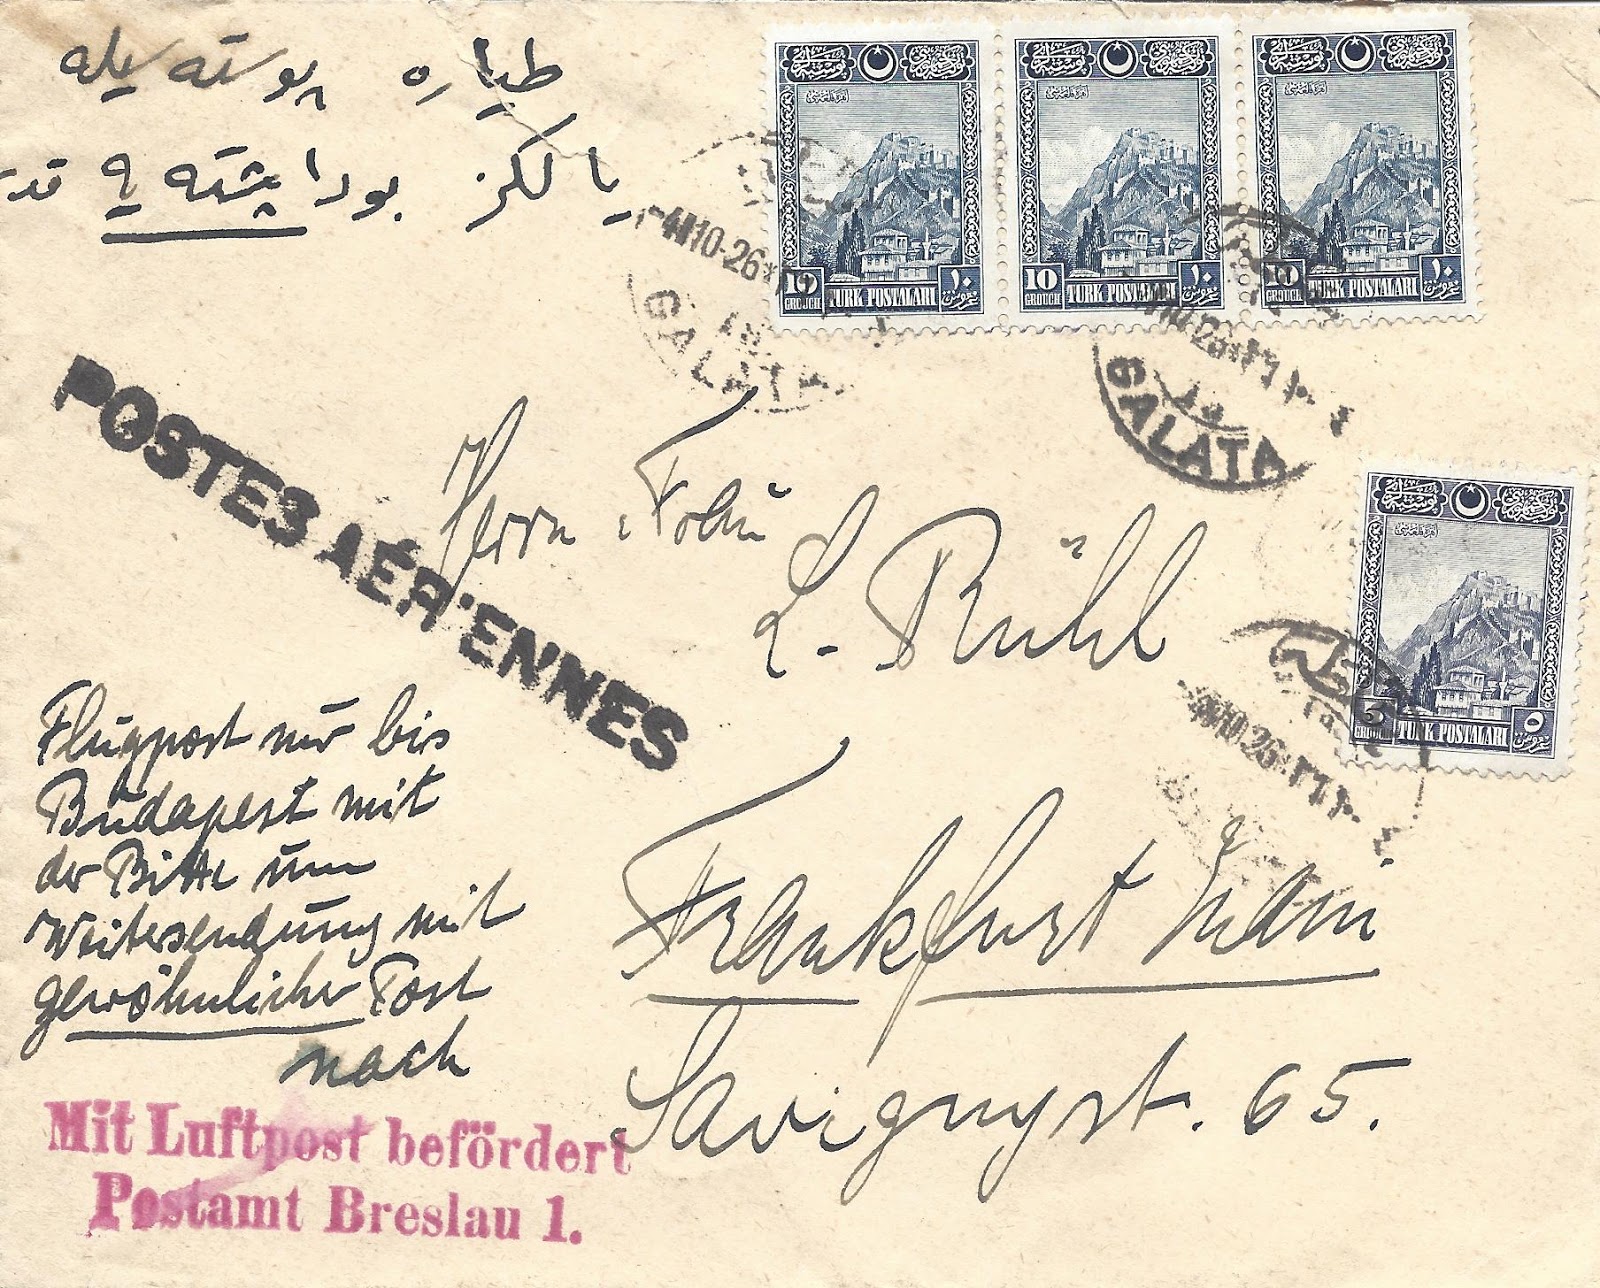 طیاره پوسته یله
یالكز بودا پشته یه قدر
10 GROUCH TURK POSTALARI ١٠ غروش
10 GROUCH TURK POSTALARI ١٠ غروش
10 GROUCH TURK POSTALARI ١٠ غروش
-4 10-26
GALATA
GALATA
POSTES AÉR'ENNES
Herrn
L. Rühl
5 GROUCH TURK POSTALARI ٥ غروش
10.26
Flugpost nur bis
Budapest mit
der Bitte um
Weitersendung mit
gewöhnlicher Post
nach
Frankfurt Main
Savignyst. 65.
Mit Luftpost befördert
Postamt Breslau 1.